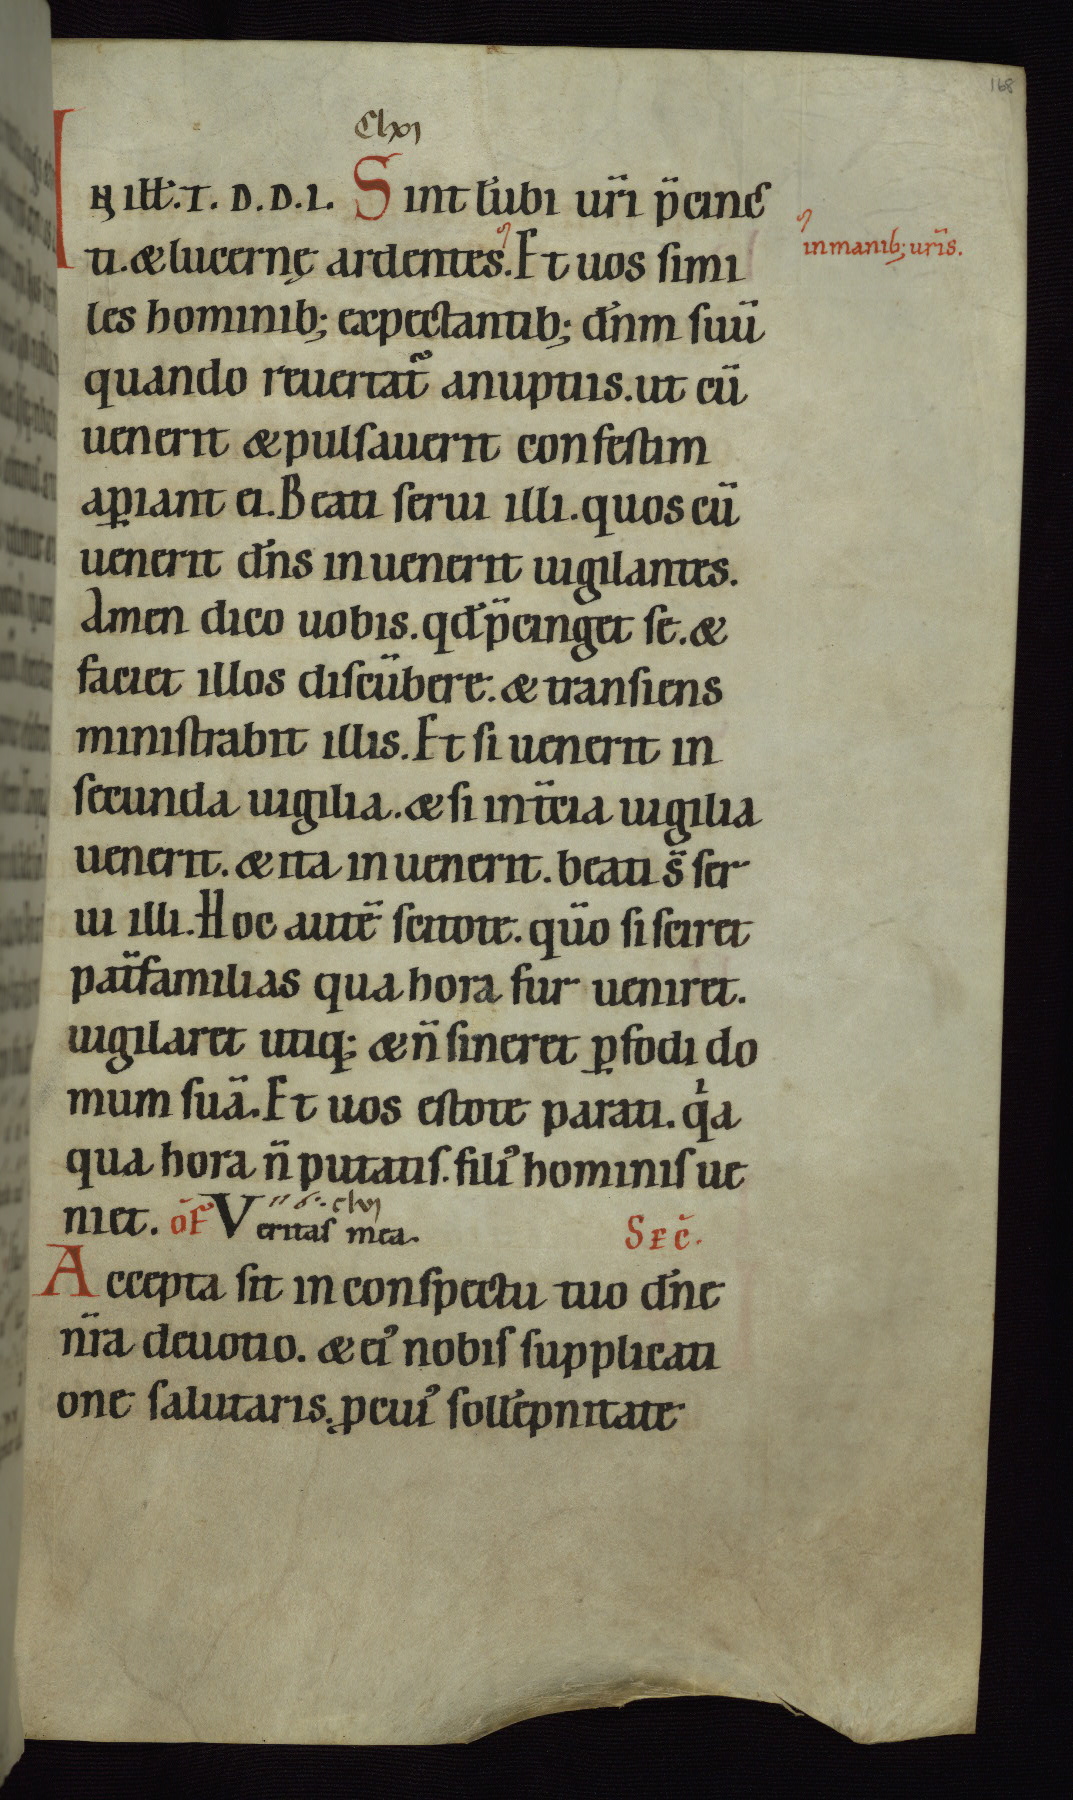 168
Clxvi
IN ILL̅. T. D. D. I. Sint lu̅bi ur̅i p̅cinc
ti. & lucernę ardentes. Et uos simi
in manib; ur̅is.
les hominib; expectantib; dn̅m suu̅
quando reuertat̅ anuptiis. ut cu̅
uenerit & pulsauerit confestim
ap̱iant ei. Beati serui illi. quos cu̅
uenerit dn̅s inuenerit uigilantes.
Amen dico uobis. qd̅ p̅cinget se. &
faciet illos discu̅bere: & transiens
ministrabit illis. Et si uenerit in
secunda uigilia. & si in t̅cia uigilia
uenerit. & ita inuenerit. beati s̅ ser
ui illi. Hoc aute̅ scitote. quo̅ si sciret
pat̅familias qua hora fur ueniret.
uigilaret utiq; & n̅ sineret p̱fodi do
mum sua̅. Et uos estote parati. qͥa
qua hora n̅ putatis. fili᾽ hominis ue
niet. of̅ Veritas mea. clvi
Sec̅.
Accepta sit in conspectu tuo dn̅e
nr̅a deuotio. & ei᾽ nobis supplicati
one salutaris. p̱ cui᾽ solle̅pnitate